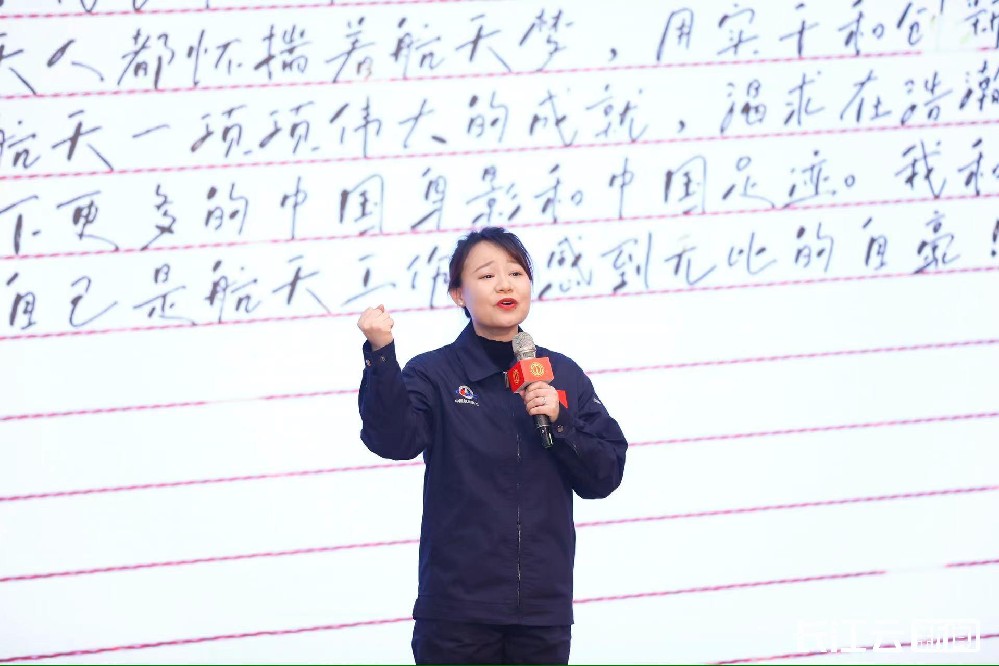 天人都怀揣着航天梦，用实干和创新
航天一项项伟大的成就，渴求在浩瀚
下更多的中国身影和中国足迹。我和
自己是航天工作 感到无比的自豪！
长江云新闻